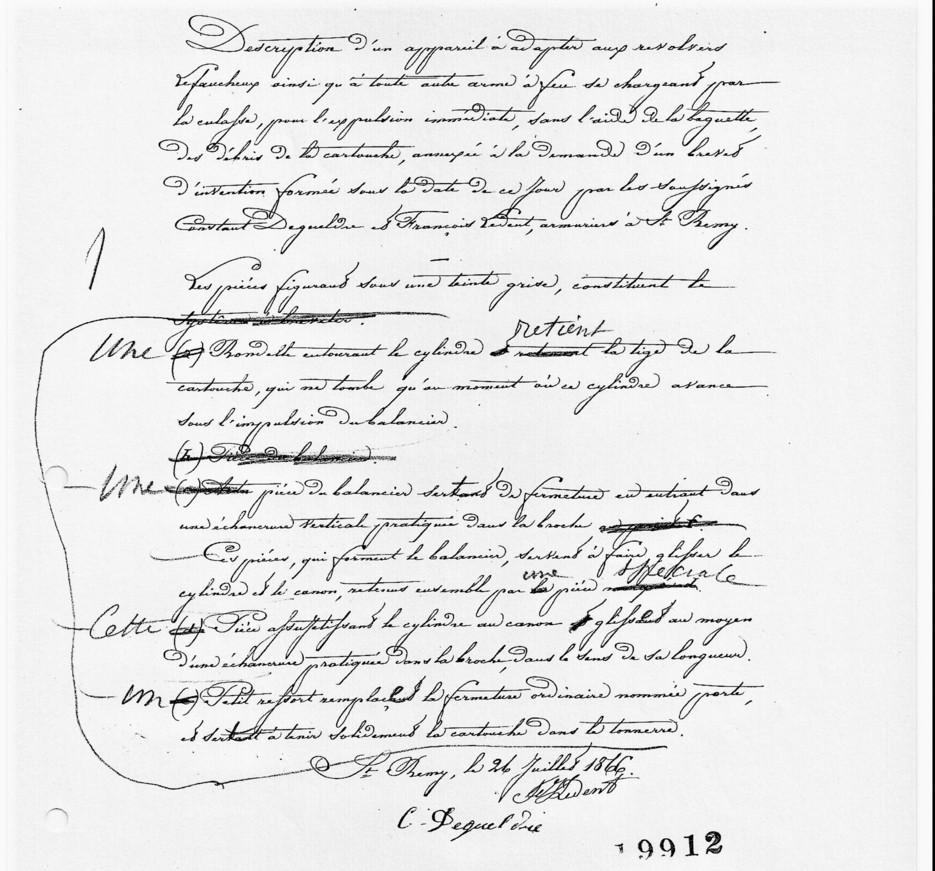 Description d'un appareil à adapter aux revolvers
Lefaucheux ainsi qu'à toute autre arme à feu se chargeant par
la culasse, pour l'expulsion immédiate, sans l'aide de la baguette,
des débris de la cartouche, annexée à la demande d'un brevet
d'invention formée sous la date de ce jour par les soussignés
Constant Dequeldre et François Ledent, armuriers à St Remy.
Les pièces figurant sous une teinte grise, constituent le
système à breveter.
retient
Une (a) Rondelle entourant le cylindre et retenant la tige de la
cartouche, qui ne tombe qu'au moment où ce cylindre avance
sous l'impulsion du balancier.
(b) Pièce du balancier.
Une (c) pièce du balancier servant de fermeture en entrant dans
une échancrure verticale pratiquée dans la broche
Ces pièces, qui forment le balancier, servent à faire glisser le
une spéciale
cylindre et le canon, retenus ensemble par la pièce
Cette (d) Pièce assujettissant le cylindre au canon glissant au moyen
d'une échancrure pratiquée dans la broche, dans le sens de sa longueur.
Un Petit ressort remplaçant la fermeture ordinaire nommée porte,
et servant à tenir solidement la cartouche dans le tonnerre.
St Remy, le 26 Juillet 1866.
Ledent
C. Dequeldre
19912